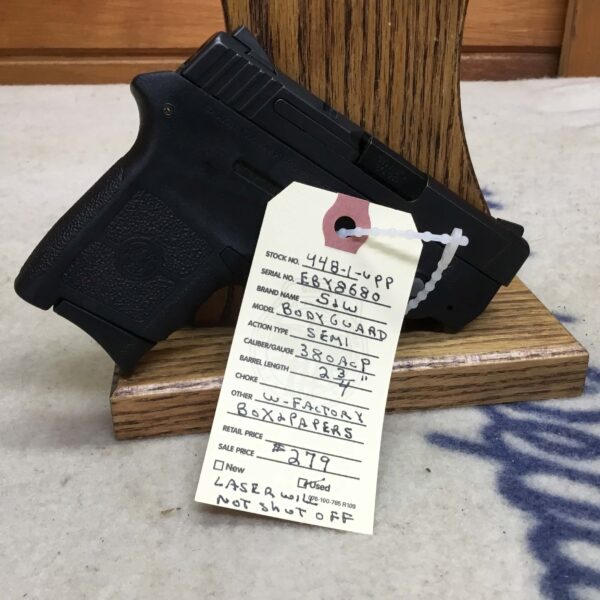 STOCK NO. 448-1-UPP
SERIAL NO. EBY8680
BRAND NAME S&W
MODEL BODYGUARD
ACTION TYPE SEMI
CALIBER/GAUGE 380ACP
BARREL LENGTH 2 3/4"
CHOKE
OTHER W-FACTORY
BOX & PAPERS
RETAIL PRICE
SALE PRICE $279
New Used
LASER WILL
NOT SHUT OFF